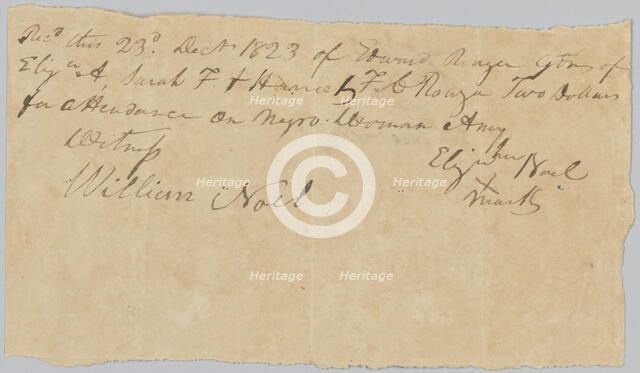 Recd this 23d. Decr 1823 of Edward Rouzee Gdn of
Elizth A, Sarah F & Harriet F C Rouzee Two Dollars
for attendance on Negro Woman Amy
Witness
Elizth Noel
William Noel
X
mark
Heritage Heritage
Heritage Heritage Heritage
Heritage Heritage